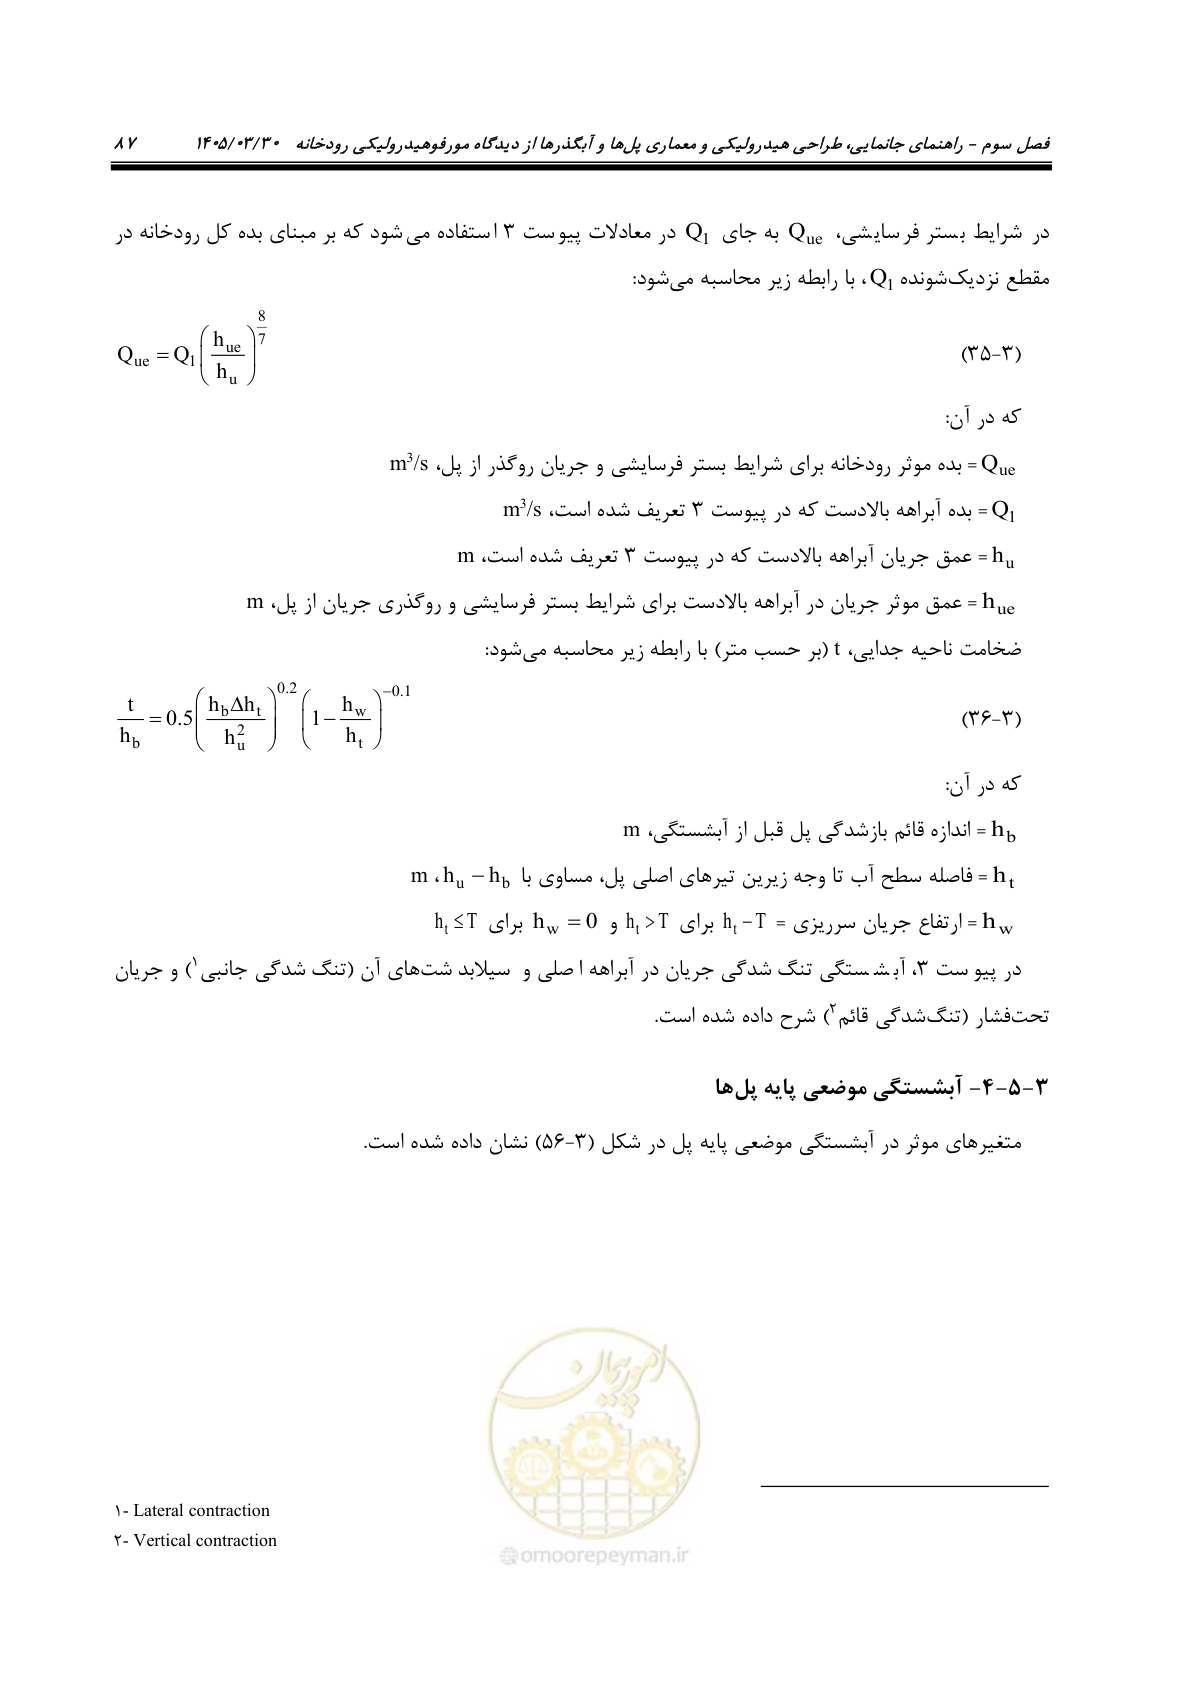 فصل سوم – راهنمای جانمایی، طراحی هیدرولیکی و معماری پل‌ها و آبگذرها از دیدگاه مورفوهیدرولیکی رودخانه ۱۴۰۵/۰۳/۳۰ ۸۷
در شرایط بستر فرسایشی، Que به جای Q1 در معادلات پیوست ۳ استفاده می‌شود که بر مبنای بده کل رودخانه در
مقطع نزدیک‌شونده Q1، با رابطه زیر محاسبه می‌شود:
Que = Q1 (hue / hu)^(8/7) (۳-۳۵)
که در آن:
Que = بده موثر رودخانه برای شرایط بستر فرسایشی و جریان روگذر از پل، m³/s
Q1 = بده آبراهه بالادست که در پیوست ۳ تعریف شده است، m³/s
hu = عمق جریان آبراهه بالادست که در پیوست ۳ تعریف شده است، m
hue = عمق موثر جریان در آبراهه بالادست برای شرایط بستر فرسایشی و روگذری جریان از پل، m
ضخامت ناحیه جدایی، t (بر حسب متر) با رابطه زیر محاسبه می‌شود:
t / hb = 0.5 (hb Δht / hu²)^0.2 (1 – hw / ht)^–0.1 (۳-۳۶)
که در آن:
hb = اندازه قائم بازشدگی پل قبل از آبشستگی، m
ht = فاصله سطح آب تا وجه زیرین تیرهای اصلی پل، مساوی با hu – hb، m
hw = ارتفاع جریان سرریزی = ht – T برای ht > T و hw = 0 برای ht ≤ T
در پیوست ۳، آبشستگی تنگ شدگی جریان در آبراهه اصلی و سیلابدشت‌های آن (تنگ شدگی جانبی۱) و جریان
تحت‌فشار (تنگ‌شدگی قائم۲) شرح داده شده است.
۳-۵-۴- آبشستگی موضعی پایه پل‌ها
متغیرهای موثر در آبشستگی موضعی پایه پل در شکل (۳-۵۶) نشان داده شده است.
امور پیمان
@omoorepeyman.ir
۱- Lateral contraction
۲- Vertical contraction